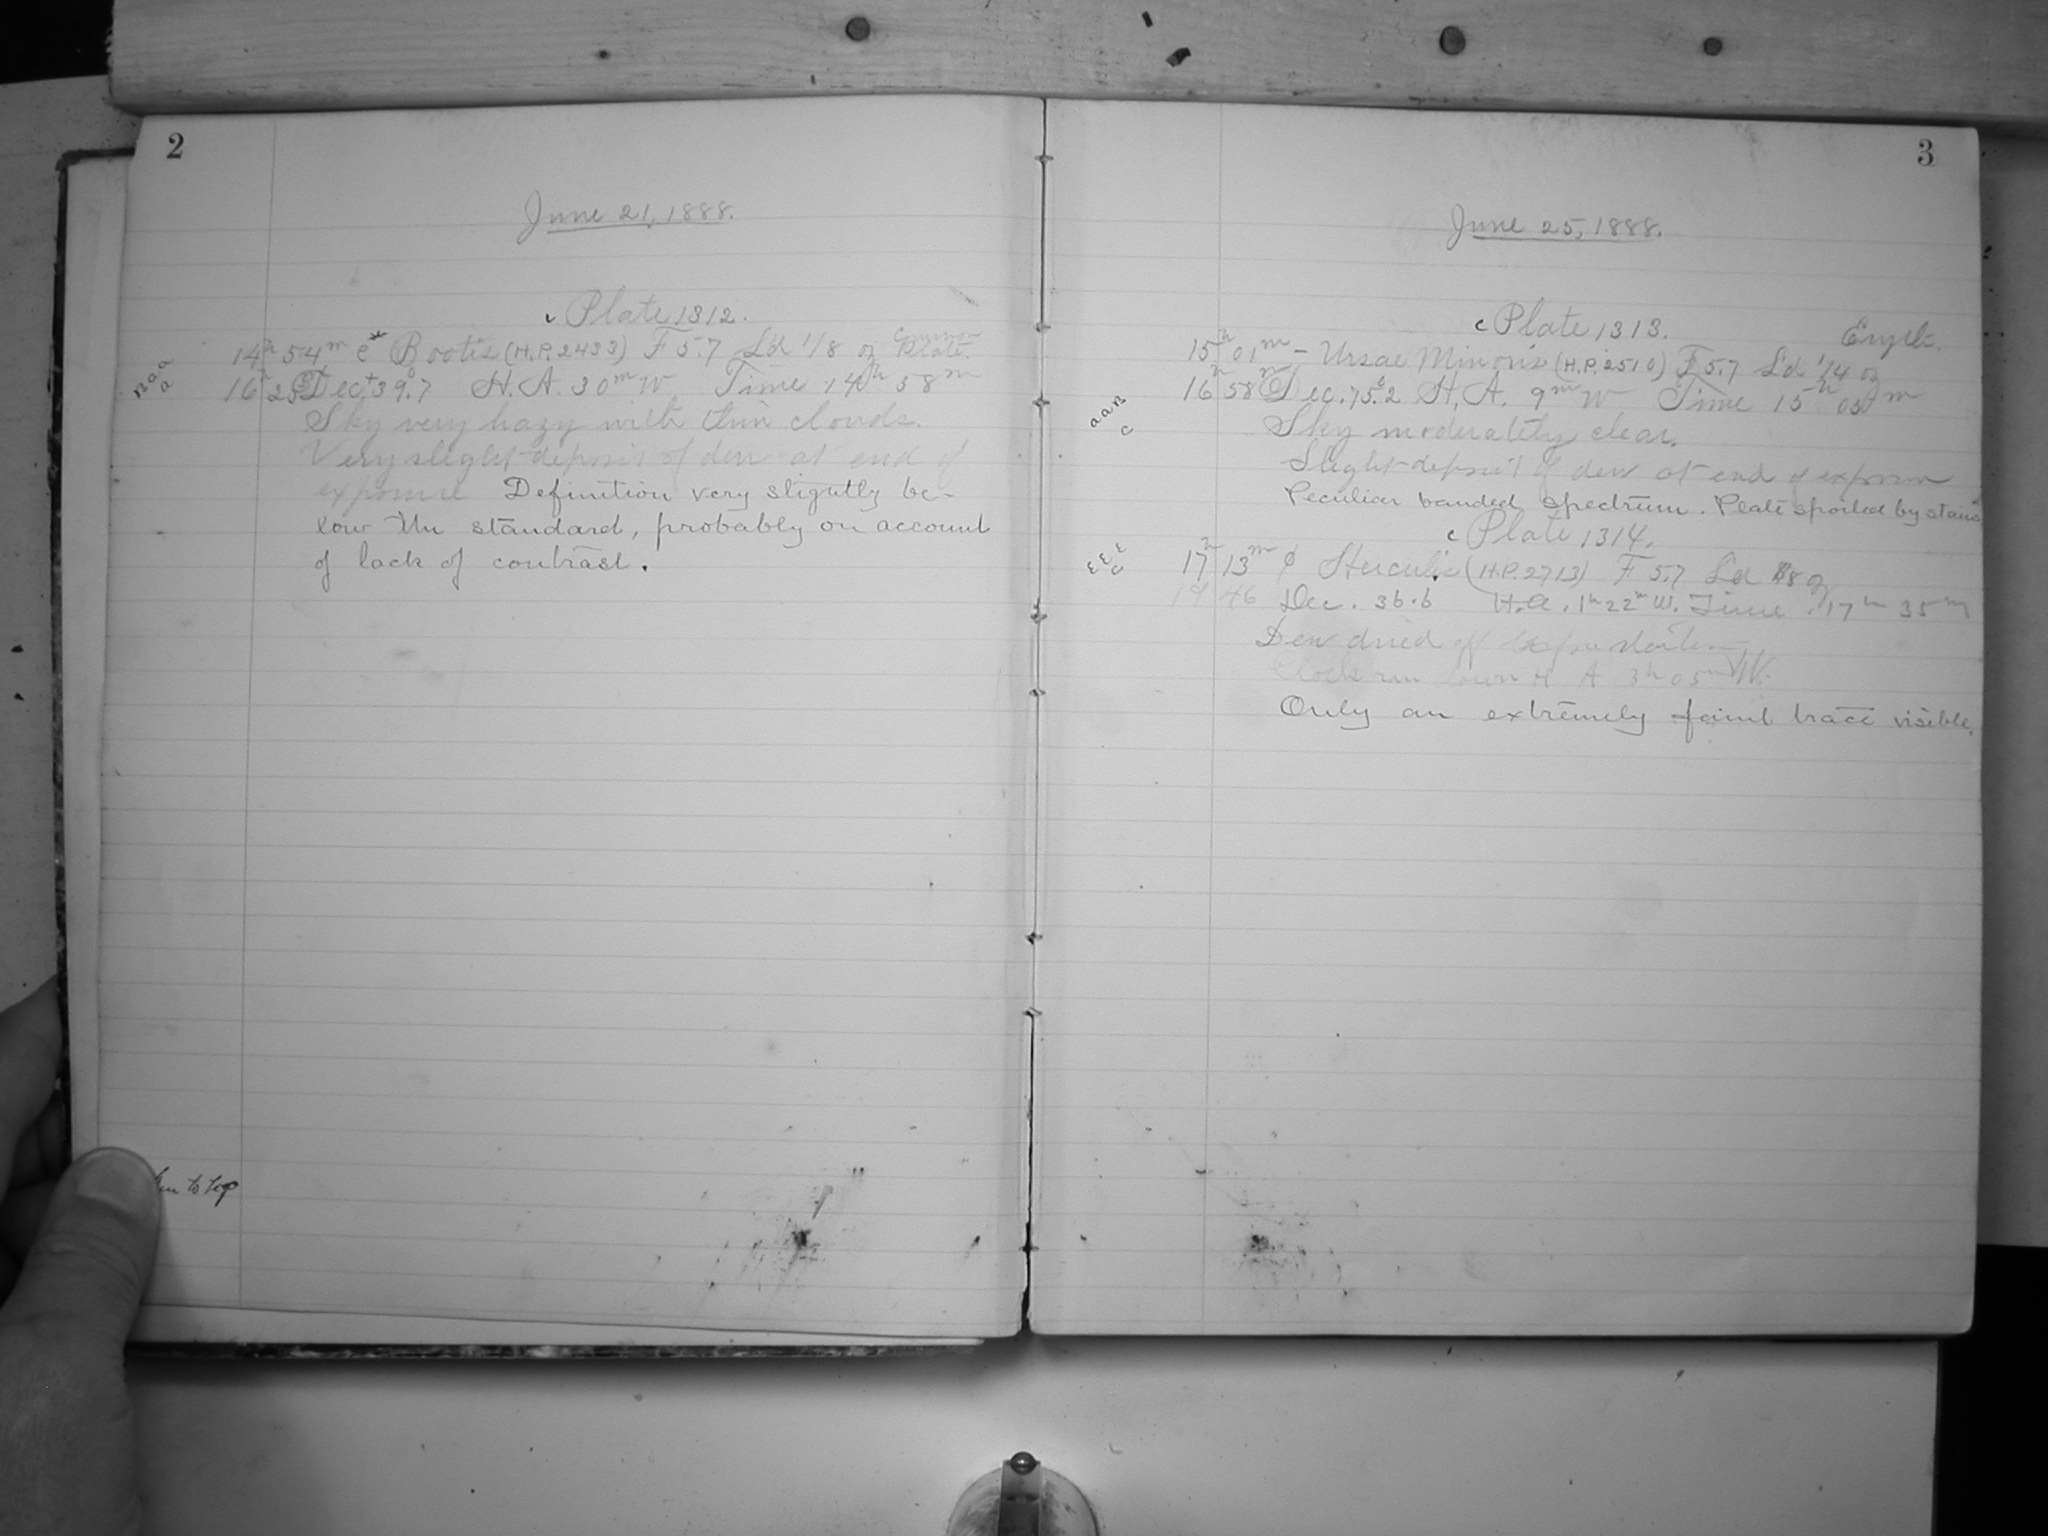 2
June 21, 1888.
c Plate 1312.
14h 54m e* Bootis (H.P. 2433) F 5.7 Ld 1/8 of Common Plate.
16h 25 Dec + 39°.7 H.A. 30m W Time 14h 58m
B a a
a
Sky very hazy with thin clouds.
Very slight deposit of dew at end of
exposure Definition very slightly be-
low the standard, probably on account
of lack of contrast.
to top
3
June 25, 1888.
c Plate 1313. Eryth.
15h 01m - Ursae Minoris (H.P. 2510) F 5.7 Ld 1/4 of
16h 58m Dec. 75°.2 H.A. 9m W Time 15h 05m
a a B
c
Sky moderately clear.
Slight deposit of dew at end of exposure
Peculiar banded spectrum. Plate spoiled by stains
c Plate 1314.
17h 13m Herculis (H.P. 2713) F 5.7 Ld 8 of
E E E
C
19 46 Dec. 36.6 H.A. 1h 22m W. Time 17h 35m
Dew dried off
Clock run down H A 3h 05m W.
Only an extremely faint trace visible.